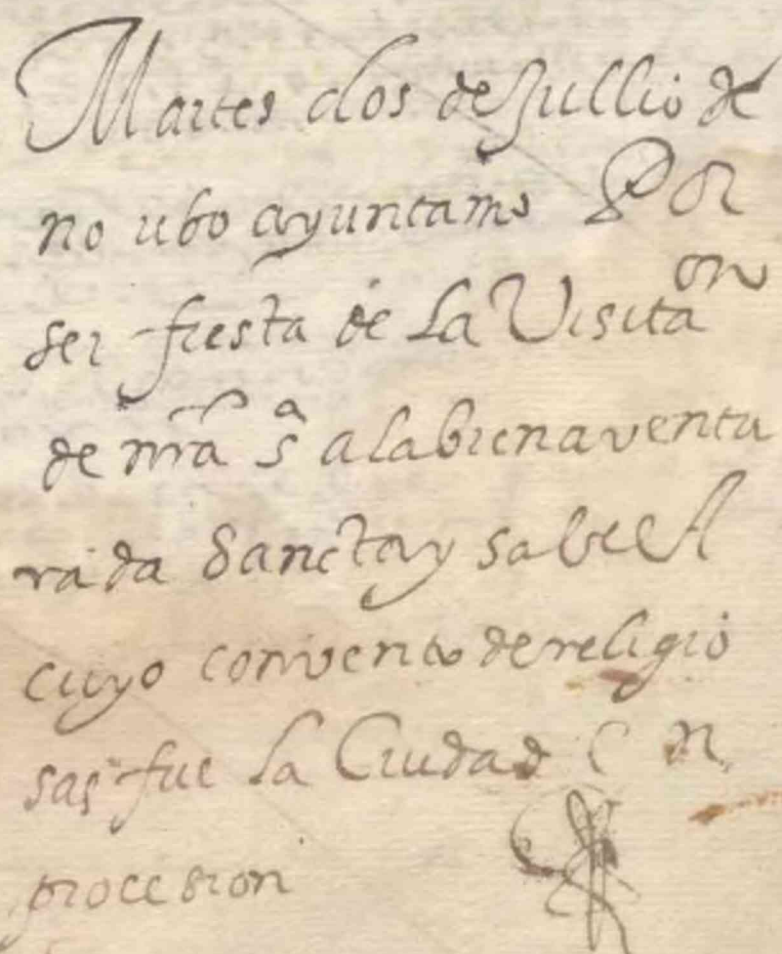 Martes dos de Jullio de
no ubo ayuntamo Por
ser fiesta de La Visitaon
de nra sa a la bienaventu
rada Sancta ysabel A
cuyo convento de religio
sas fue la Ciudad En
procesion